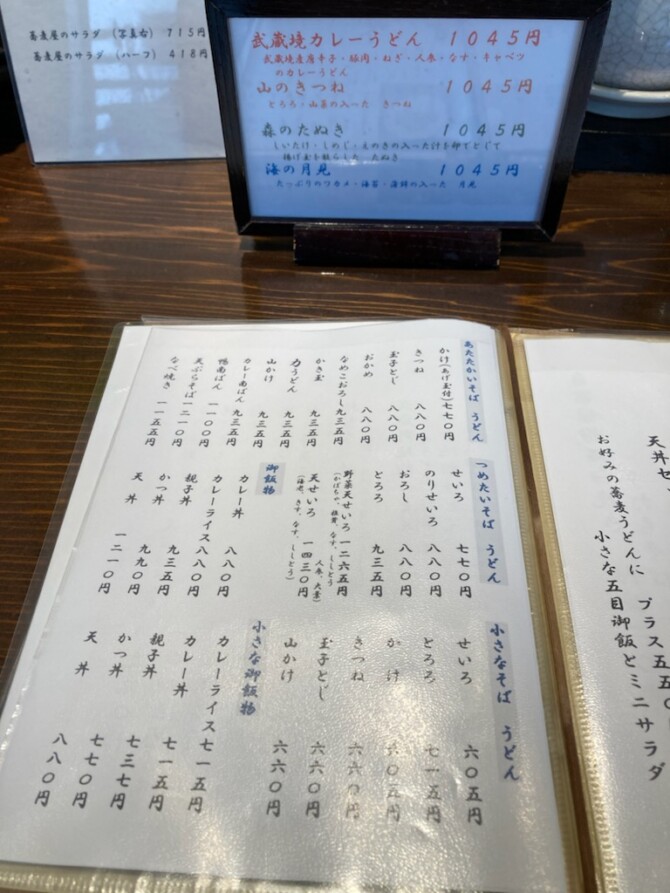 蕎麦屋のサラダ (写真右) 715円
蕎麦屋のサラダ (ハーフ) 418円
武蔵境カレーうどん 1045円
武蔵境産唐辛子・豚肉・ねぎ・人参・なす・キャベツ
のカレーうどん
山のきつね 1045円
とろろ・山菜の入った きつね
森のたぬき 1045円
しいたけ・しめじ・えのきの入った汁を卵でとじて
揚げ玉を散らした たぬき
海の月見 1045円
たっぷりのワカメ・海苔・蒲鉾の入った 月見
あたたかいそば うどん
かけ(あげ玉付)七七〇円
きつね 八八〇円
玉子とじ 八八〇円
おかめ 八八〇円
なめこおろし九三五円
かき玉 九三五円
力うどん 九三五円
山かけ 九三五円
カレー南ばん 九三五円
鴨南ばん 一一〇〇円
天ぷらそば一二一〇円
なべ焼き 一一五五円
つめたいそば うどん
せいろ 七七〇円
のりせいろ 八八〇円
おろし 八八〇円
とろろ 九三五円
野菜天せいろ 一二六五円
(かぼちゃ、椎茸、なす、ししとう
人参、大葉)
天せいろ 一四三〇円
(海老、きす、なす、ししとう)
御飯物
カレー丼 八八〇円
カレーライス八八〇円
親子丼 九三五円
かつ丼 九九〇円
天丼 一二一〇円
小さなそば うどん
せいろ 六〇五円
とろろ 七一五円
かけ 六〇五円
きつね 六六〇円
玉子とじ 六六〇円
山かけ 六六〇円
小さな御飯物
カレーライス七一五円
カレー丼 七一五円
親子丼 七三七円
かつ丼 七七〇円
天丼 八八〇円
天丼セ
プラス五五〇
お好みの蕎麦うどんに
小さな五目御飯とミニサラダ